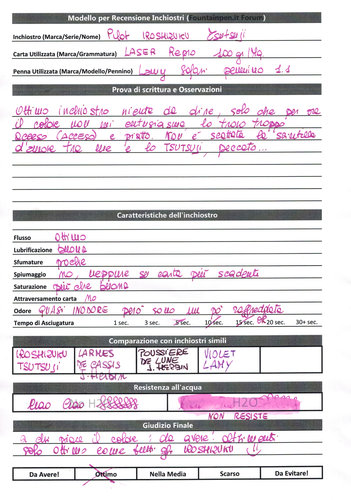 Modello per Recensione Inchiostri (Fountainpen.it Forum)
Inchiostro (Marca/Serie/Nome) Pilot IROSHIZUKU Tsutsuji
Carta Utilizzata (Marca/Grammatura) LASER Repro 100 gr/Mq
Penna Utilizzata (Marca/Modello/Pennino) Lamy Safari pennino 1.1
Prova di scrittura e Osservazioni
Ottimo inchiostro niente da dire, solo che per me
il colore non mi entusiasma lo trovo troppo
acceso (ACCESO) e piatto. Non è scattata la scintilla
d'amore tra me e lo TSUTSUJI, peccato...
Caratteristiche dell'inchiostro
Flusso Ottimo
Lubrificazione buona
Sfumature poche
Spiumaggio no, neppure su carta più scadente
Saturazione più che buona
Attraversamento carta No
Odore QUASI INODORE però sono un po' raffreddato
Tempo di Asciugatura 1 sec. 3 sec. 5 sec. 10 sec. 15 sec. 20 sec. 30+ sec.
Comparazione con inchiostri simili
IROSHIZUKU TSUTSUJI
LARMES DE CASSIS J. HERBIN
POUSSIERE DE LUNE J. HERBIN
VIOLET LAMY
Resistenza all'acqua
Ciao Ciao H2O
NON RESISTE
Giudizio Finale
a chi piace il colore: da avere! altrimenti
solo ottimo come tutti gli IROSHIZUKU
Da Avere! Ottimo Nella Media Scarso Da Evitare!